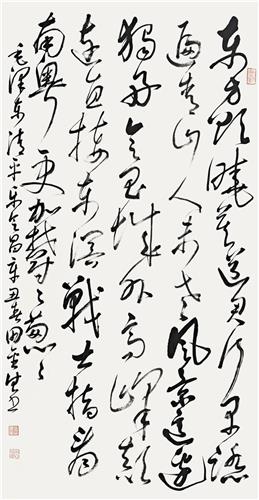 东方欲曉莫道君行早踏
遍青山人未老風景這邊
獨好会昌城外高峰颠
連直接东溟戰士指看
南粤更加郁々葱々
毛泽东清平乐会昌辛丑春田